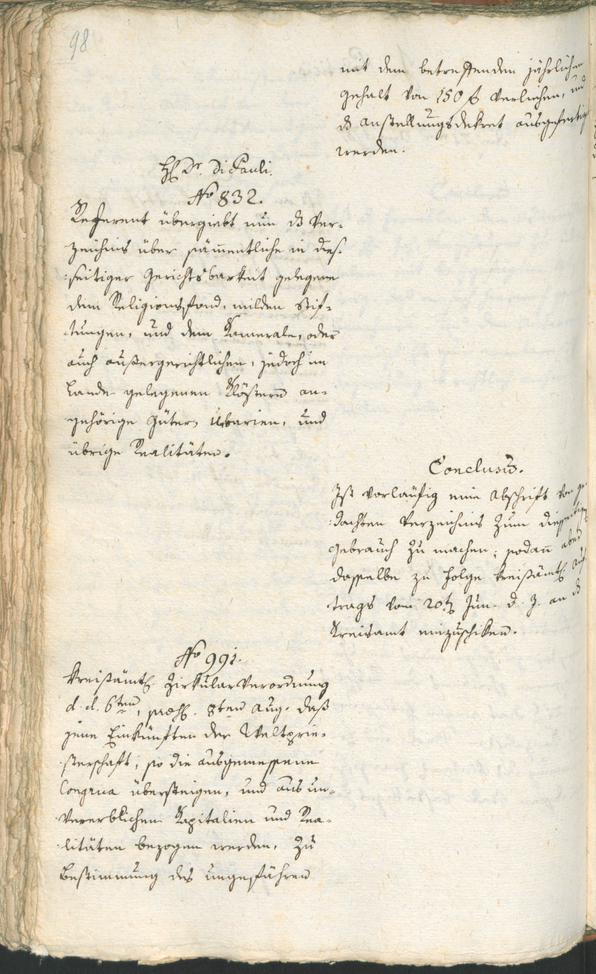 98
mit dem betreffenden jährlichen
gehalt von 150 f verliehen, und
ds anstellungsdekret ausgefertigt
werden.
H. Dr. Di Pauli.
No 832.
Referent übergiebt nun ds Ver-
zeichnis über sämmentliche in dies-
seitiger Gerichtsbarkeit gelegene
dem Religionsfond, milden Stif-
tungen, und dem Kamerale, oder
auch außergerichtlichen, jedoch im
Lande gelegenen Klöstern an-
gehörige Güter, Urbarien, und
übrige Realitäten.
Conclusum.
Ist vorläufig eine Abschrift von ge-
dachten Verzeichnis zum diesseitigen
gebrauch zu machen; sodann aber
dasselbe zu folge kreisämtl. auf-
trags vom 20ten Jun. d. J. an ds
Kreisamt einzuschiken.
No 991.
Kreisämtl. Zirkularverordnung
d. d. 6ten, praes. 8ten Aug. daß
jene Einkünften der Weltprie-
sterschaft, so die ausgemessene
Congrua übersteigen, und aus un-
vererblichen Kapitalien und Rea-
litäten bezogen werden, zu
Bestimmung des ungefähren